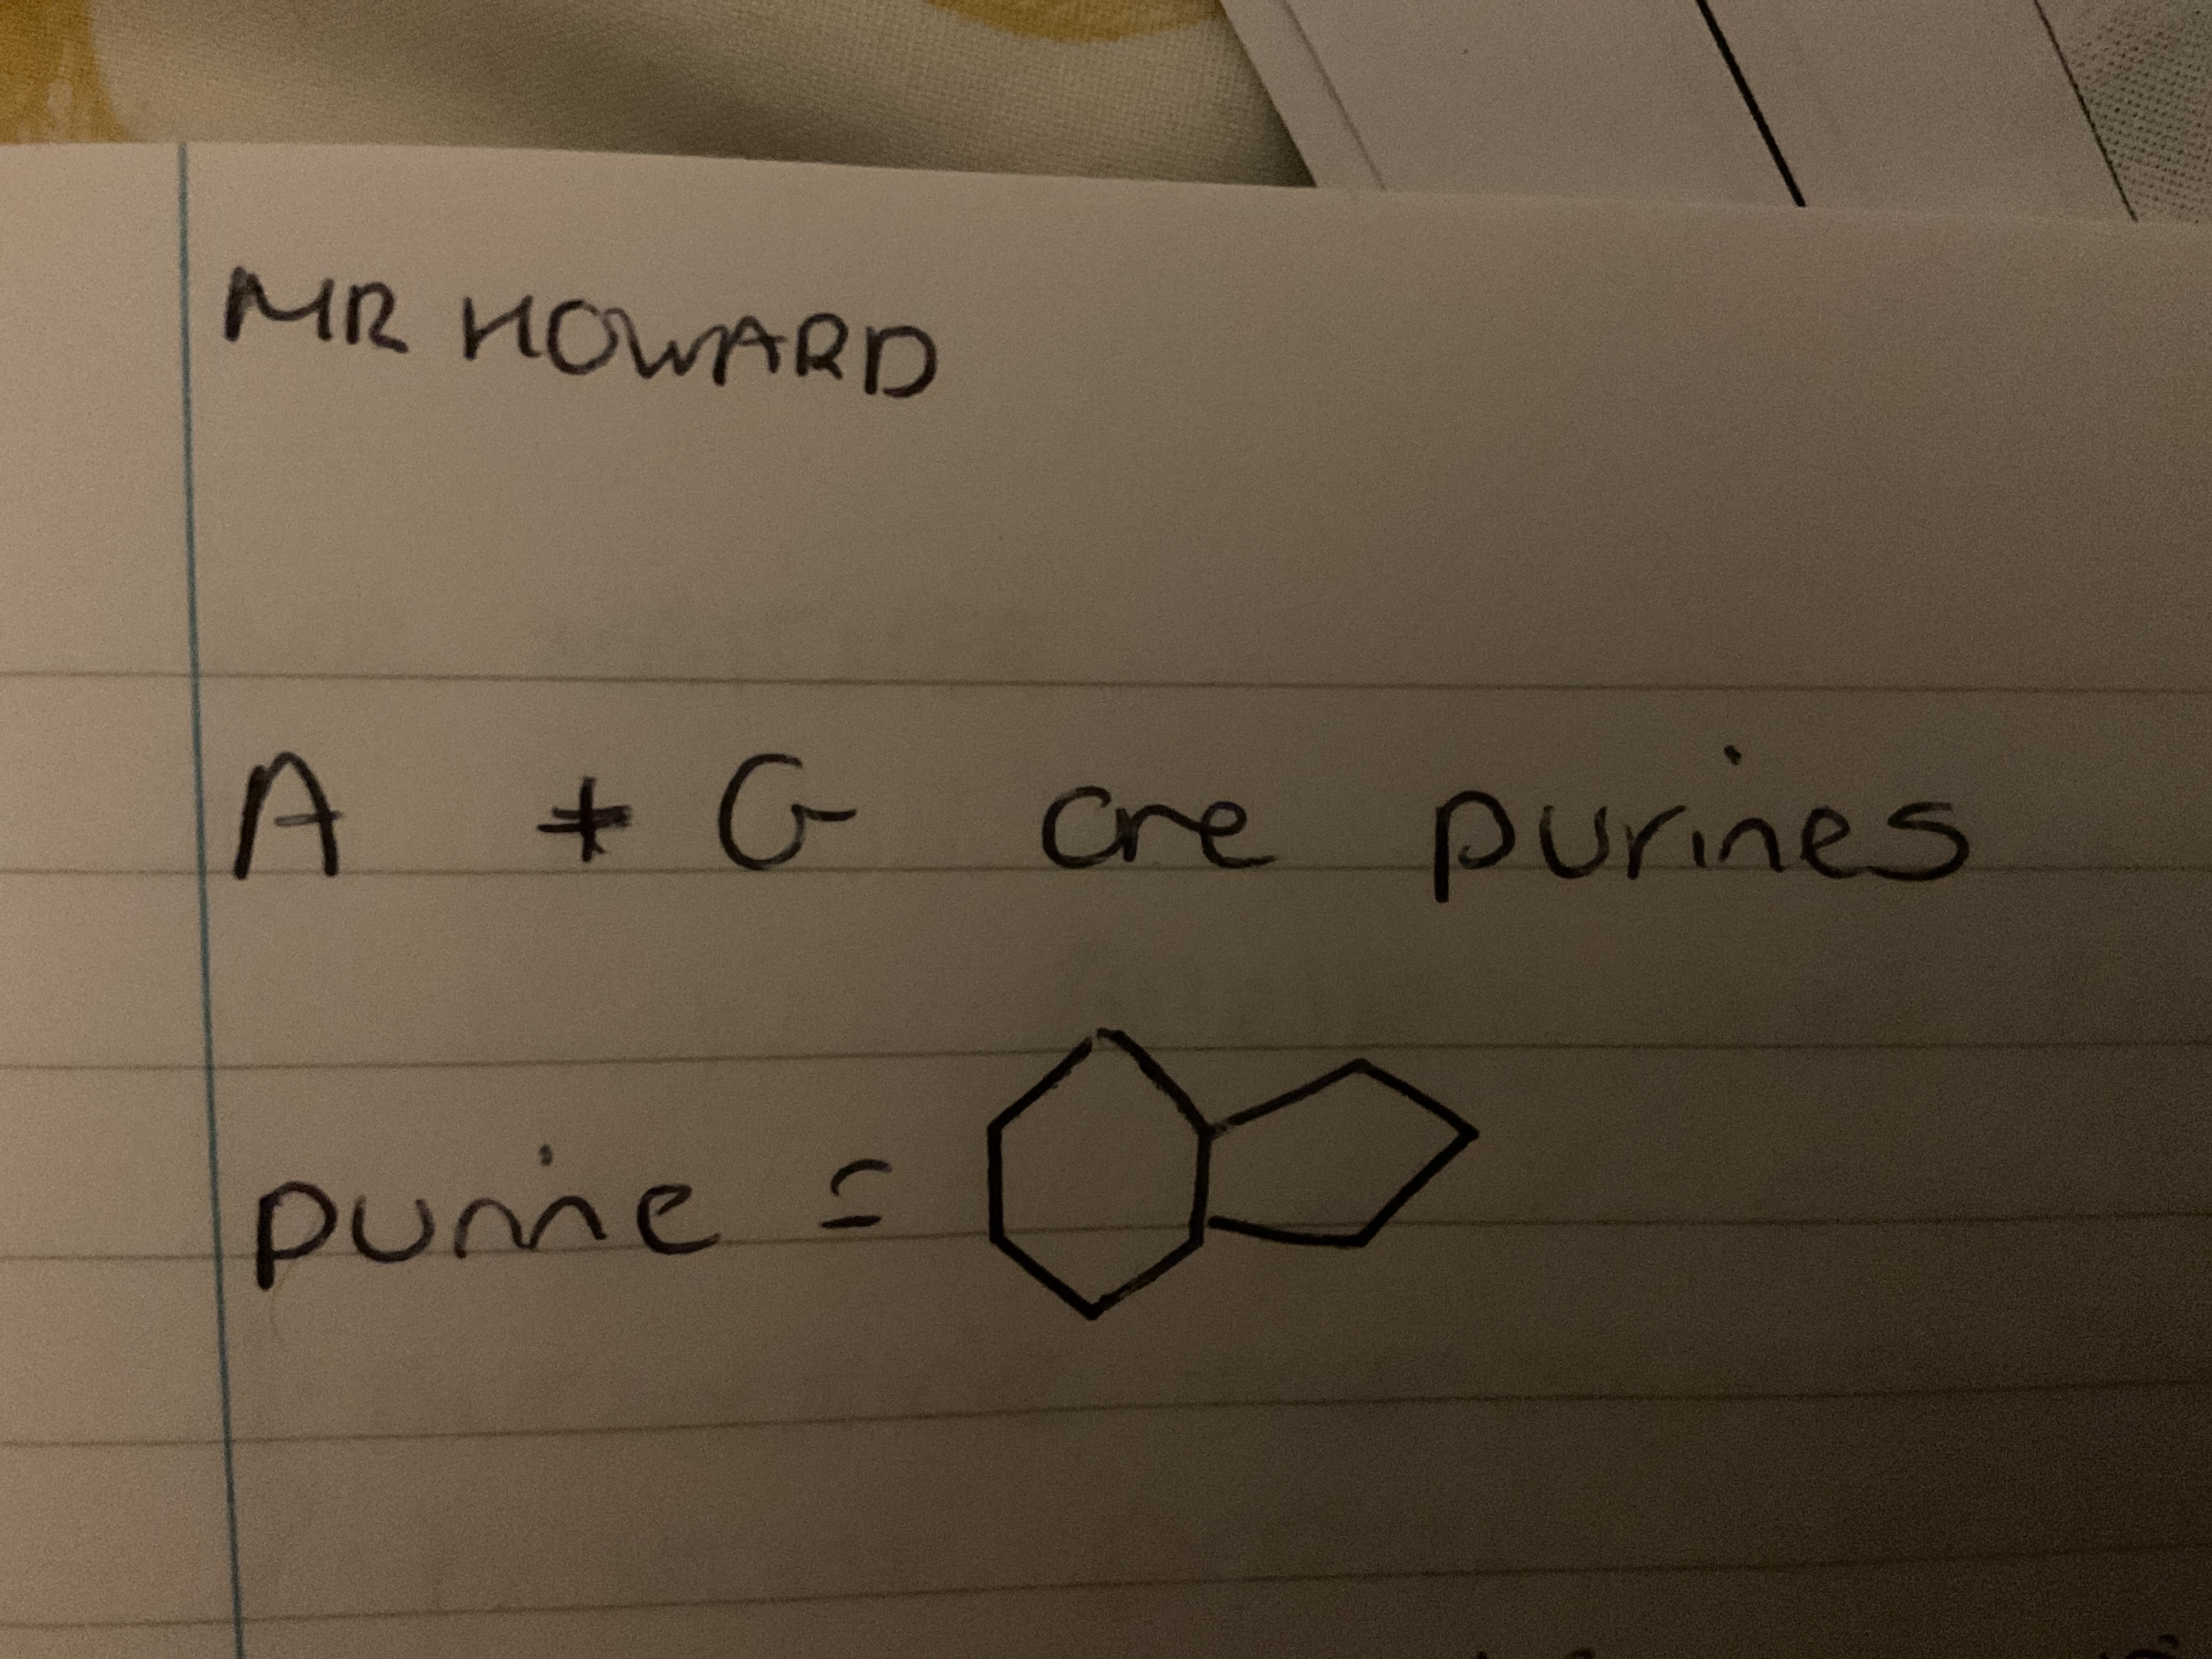 MR HOWARD
A + G are purines
purine =